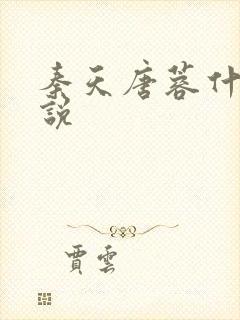 秦天唐蓉什
說
賈雲